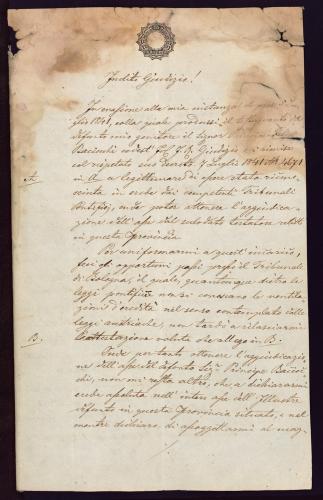 Inclito Giudizio!
In evasione alla mia instanza
glio 1841, colla quale produssi il testamento del
defunto mio genitore il Signor
Baciocchi codest' I. R. Giudizio
col rispettato suo decreto 7 Luglio 1841 N. 4671
A. in A a legittimare di essere stata ricono-
sciuta in erede dai competenti Tribunali
Pontifici, onde poter ottenere l'aggiudica-
zione dell'asse del sullodato testatore esistente
in questa Provincia
Per uniformarmi a quest' incarico,
feci gli opportuni passi presso il Tribunale
di Bologna, il quale, quantunque dietro le
leggi pontificie non si conoscano le ventila-
zioni d'eredità nel senso contemplato dalle
leggi austriache, non tardò a rilasciarmi
B. l'attestazione voluta che allego in B.
Onde pertanto ottenere l'aggiudicazio-
ne dell'asse del defunto Sig. Principe Bacioc-
chi, non mi resta altro, che a dichiararmi
erede assoluta nell' intero asse dell' Illustre
defunto in questa Provincia situato, e nel
mentre dichiaro di assoggettarmi al mag-